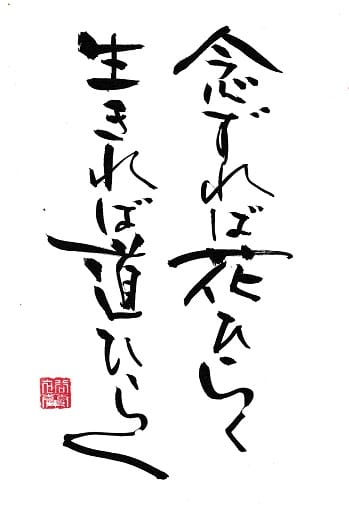 念ずれば花ひらく
生きれば道ひらく